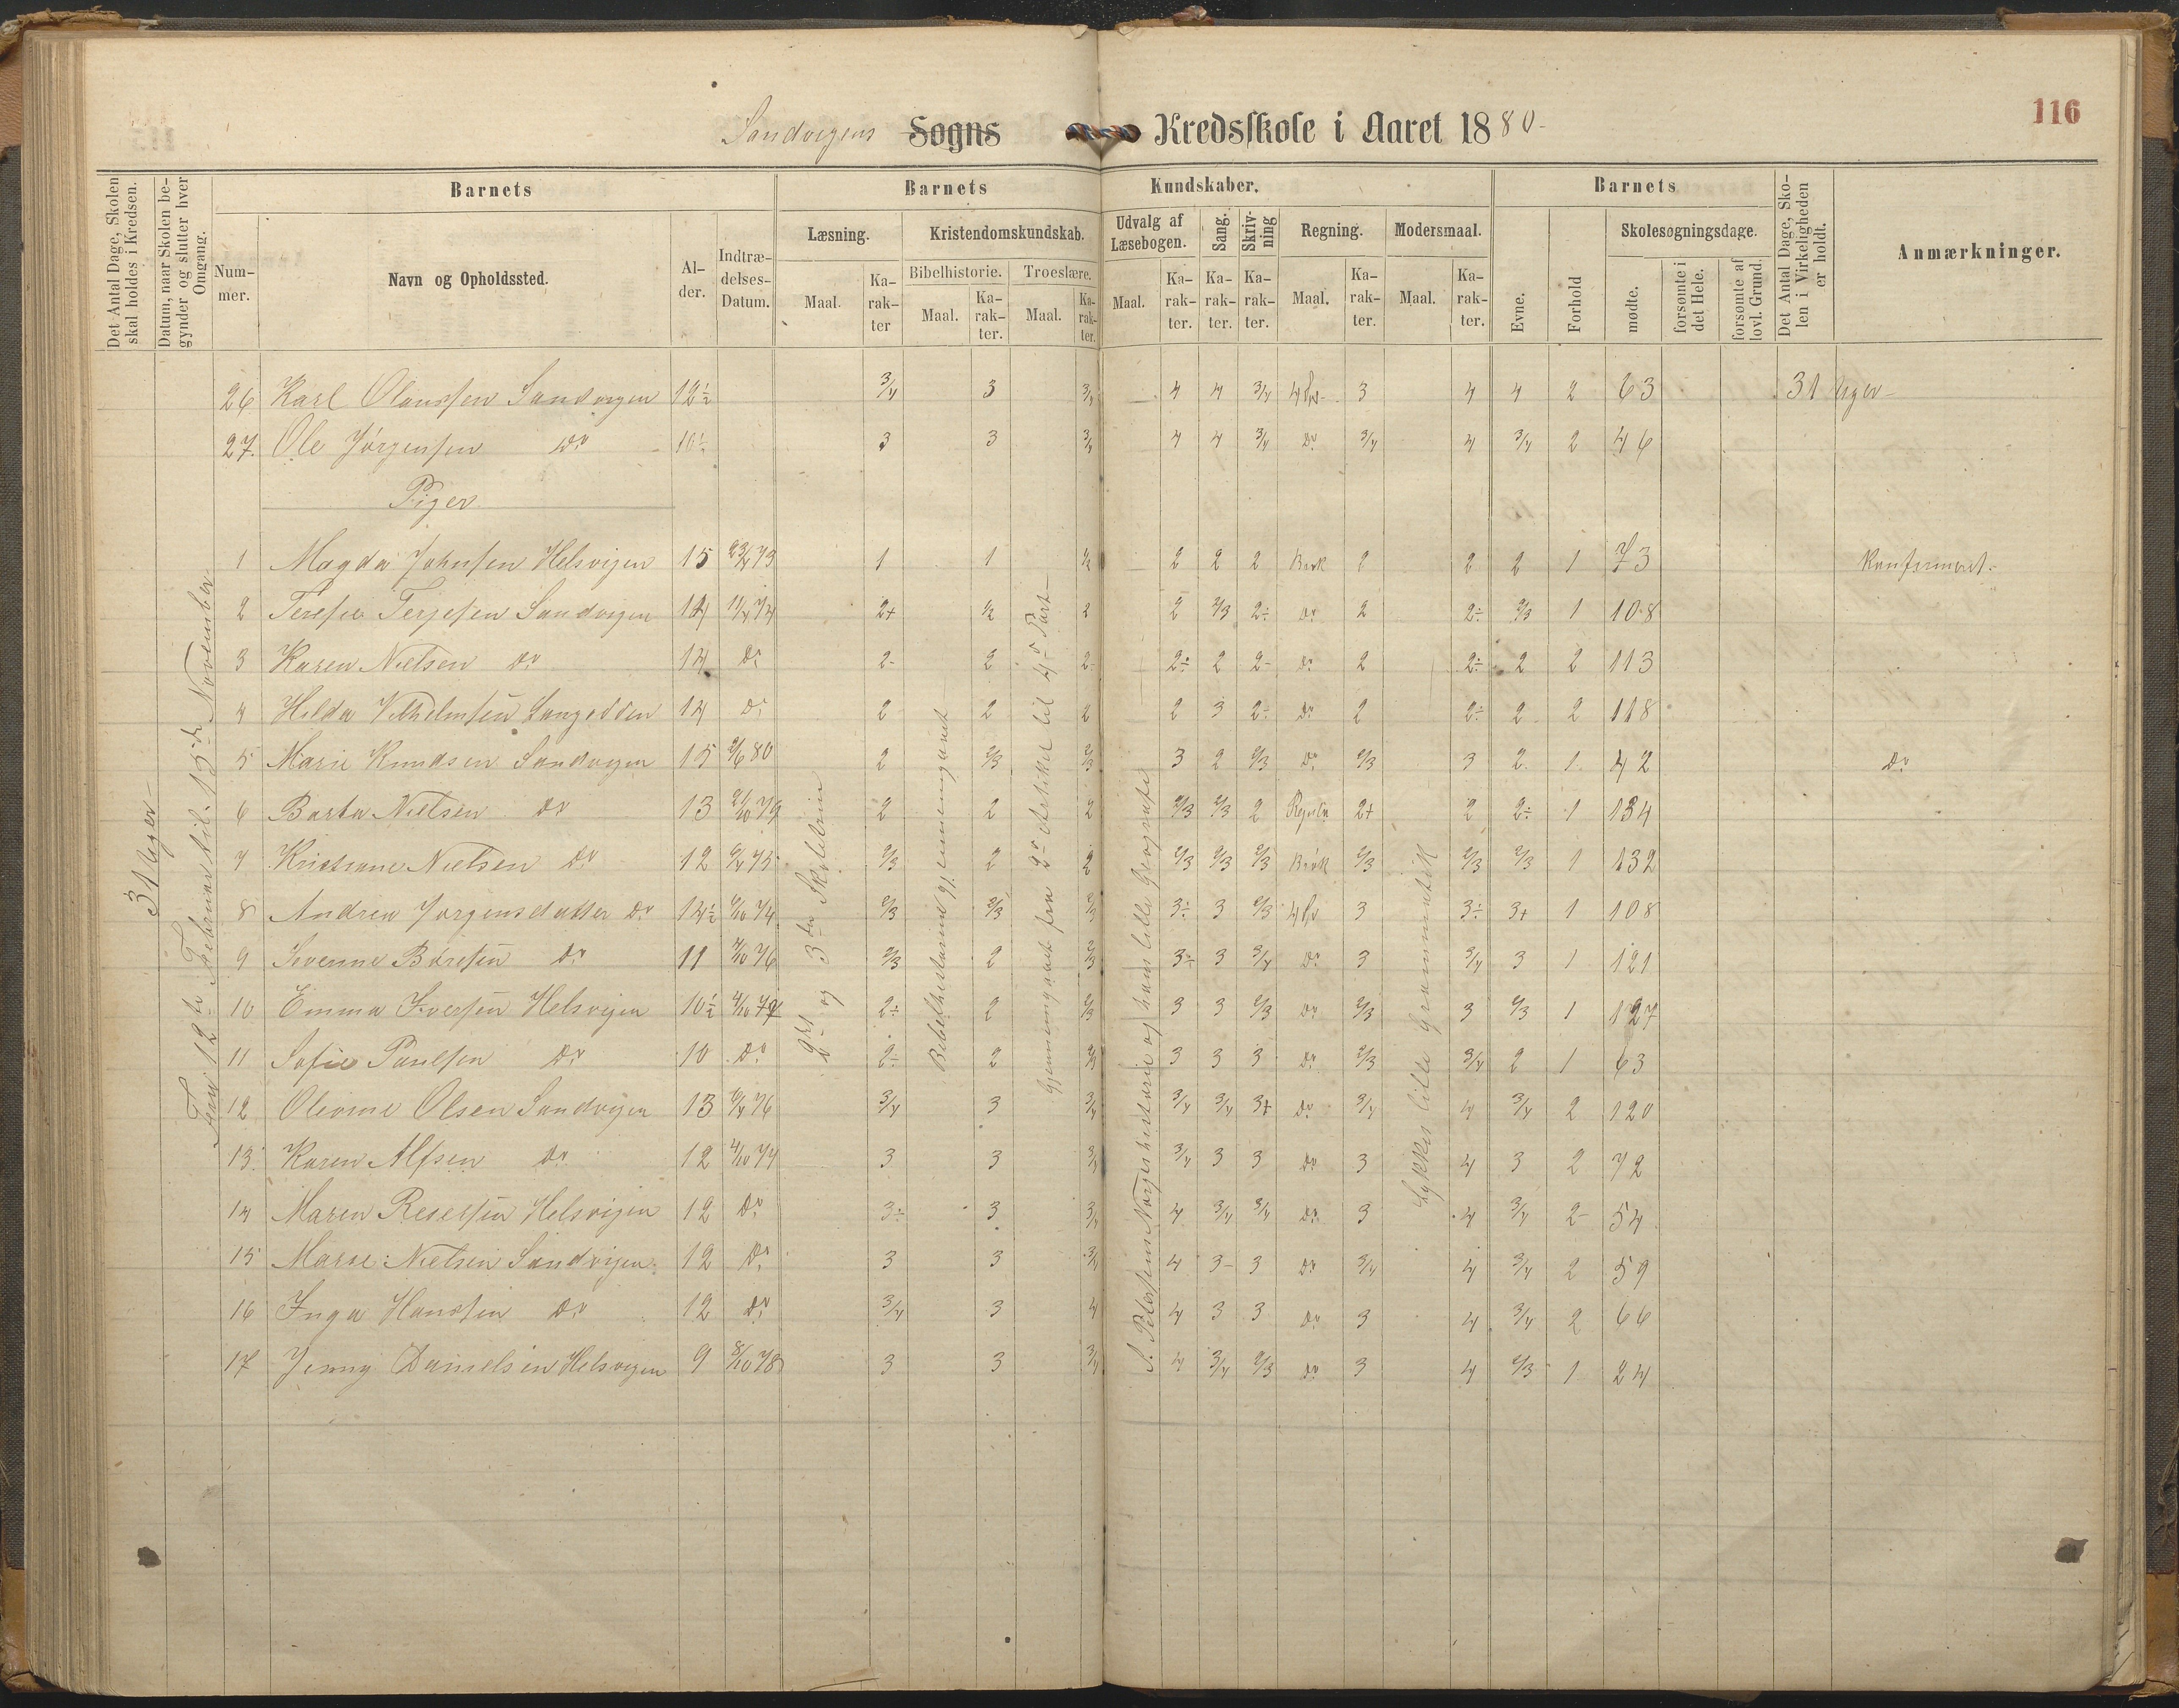 116
Sandvigens Sogns Kredsskole i Aaret 1880-
Det Antal Dage, Skolen skal holdes i Kredsen.
Datum, naar Skolen begynder og slutter hver Omgang.
Barnets
Barnets Kundskaber.
Barnets
Det Antal Dage, Skolen i Virkeligheden er holdt.
Anmærkninger.
Nummer. Navn og Opholdssted. Alder. Indtrædelses-Datum.
Læsning. Kristendomskundskab. Udvalg af Læsebogen. Sang. Skrivning Regning. Modersmaal.
Bibelhistorie. Troeslære.
Maal. Karakter Maal. Karakter. Maal. Karakter. Maal. Karakter. Karakter. Karakter. Maal. Karakter. Maal. Karakter.
Evne. Forhold Skolesøgningsdage. mødte. forsømte i det Hele. forsømte af lovl. Grund.
31 Uger-
Fra 12te Februar til 15de November
2den og 3die Skoletrin
Bibelhistorien gjennemgaaet
gjennemgaaet fra 2den Artikel til 4de Part
S. Petersens Norgeshistorie og hans lille Geografi
Løkkes lille Grammatik
26 Karl Olaussen Sandvigen 12½ 3/4 3 3/4 4 4 3/4 3 4 4 2 63 31 Uger-
27. Ole Jørgensen do 10½ 3 3 3/4 4 4 3/4 do 3/4 4 3/4 2 46
Piger
1 Magda Johnsen Helsvigen 15 1 1 1/2 2 2 2 Brøk 2 2 2 1 73 Konfirmeret.
2 Terese Terjesen Sandvigen 14 2+ 1/2 2 2 2/3 2÷ do 2 2÷ 2/3 1 108
3 Karen Nielsen do 14 do 2- 2 2- 2÷ 2 2- do 2 2÷ 2 2 113
4 Hilda Vilhelmsen Langodden 14 do 2 2 2 2 3 2÷ do 2 2÷ 2 2 118
5 Marie Knudsen Sandvigen 15 2 2/3 2/3 3 2 2/3 do 2/3 3 2 1 42 do
6 Barta Nielsen do 13 2 2 2 2/3 2/3 2 2+ 2 2÷ 1 134
7 Kristiane Nielsen do 12 2/3 2 2 2/3 2/3 2/3 Brøk 2/3 2/3 2/3 1 132
8 Andrea Jørgensdatter do 14½ 2/3 2/3 2/3 3÷ 3 2/3 3 3÷ 3+ 1 108
9 Severine Børesen do 11 4/10 76 2/3 2 2/3 3÷ 3 3/4 do 3 3/4 3 1 121
10 Emma Iversen Helsvigen 10½ 2÷ 2 2/3 3 3 2/3 do 2/3 3 2/3 1 127
11 Sofie Paulsen do 10 do 2÷ 2 2/3 3 3 3 do 2/3 3/4 2 1 63
12 Olevine Olsen Sandvigen 13 3/4 3 3/4 3/4 3/4 3+ do 3/4 4 3/4 2 120
13. Karen Alfsen do 12 4/10 74 3 3 3/4 3/4 3 3 do 3 4 3 2 72
14 Maren Reiersen Helsvigen 12 do 3÷ 3 3/4 4 3/4 3/4 do 3 4 3/4 2- 54
15 Marie Nielsen Sandvigen 12 do 3 3 3/4 4 3- 3 do 3/4 4 3/4 2 59
16 Inga Hansen do 12 do 3/4 3 4 4 3 3 do 3 4 3/4 2 66
17 Jenny Danielsen Helsvigen 9 8/10 78 3 3 3/4 4 3/4 2/3 do 3 4 2/3 1 24